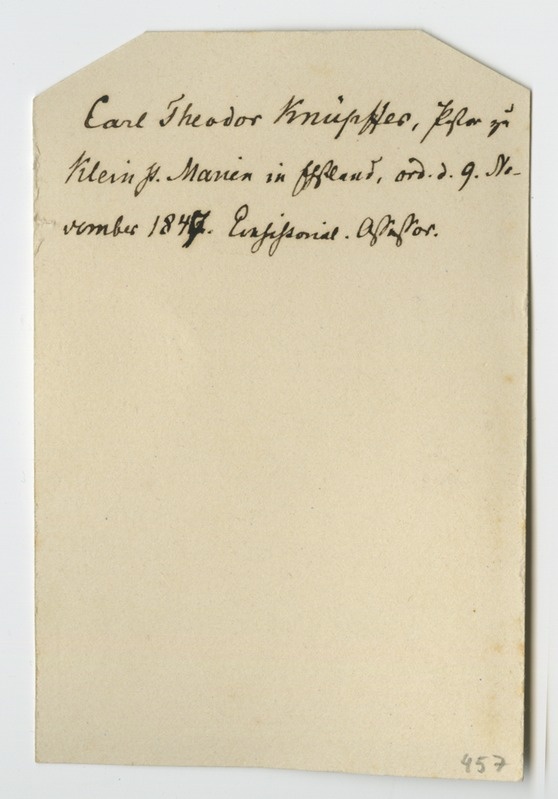 Carl Theodor Knüpffer, Pstor zu
Klein St. Marien in Ehstland, ord. d. 9. No-
vember 1847. Consistorial. Assessor.
457